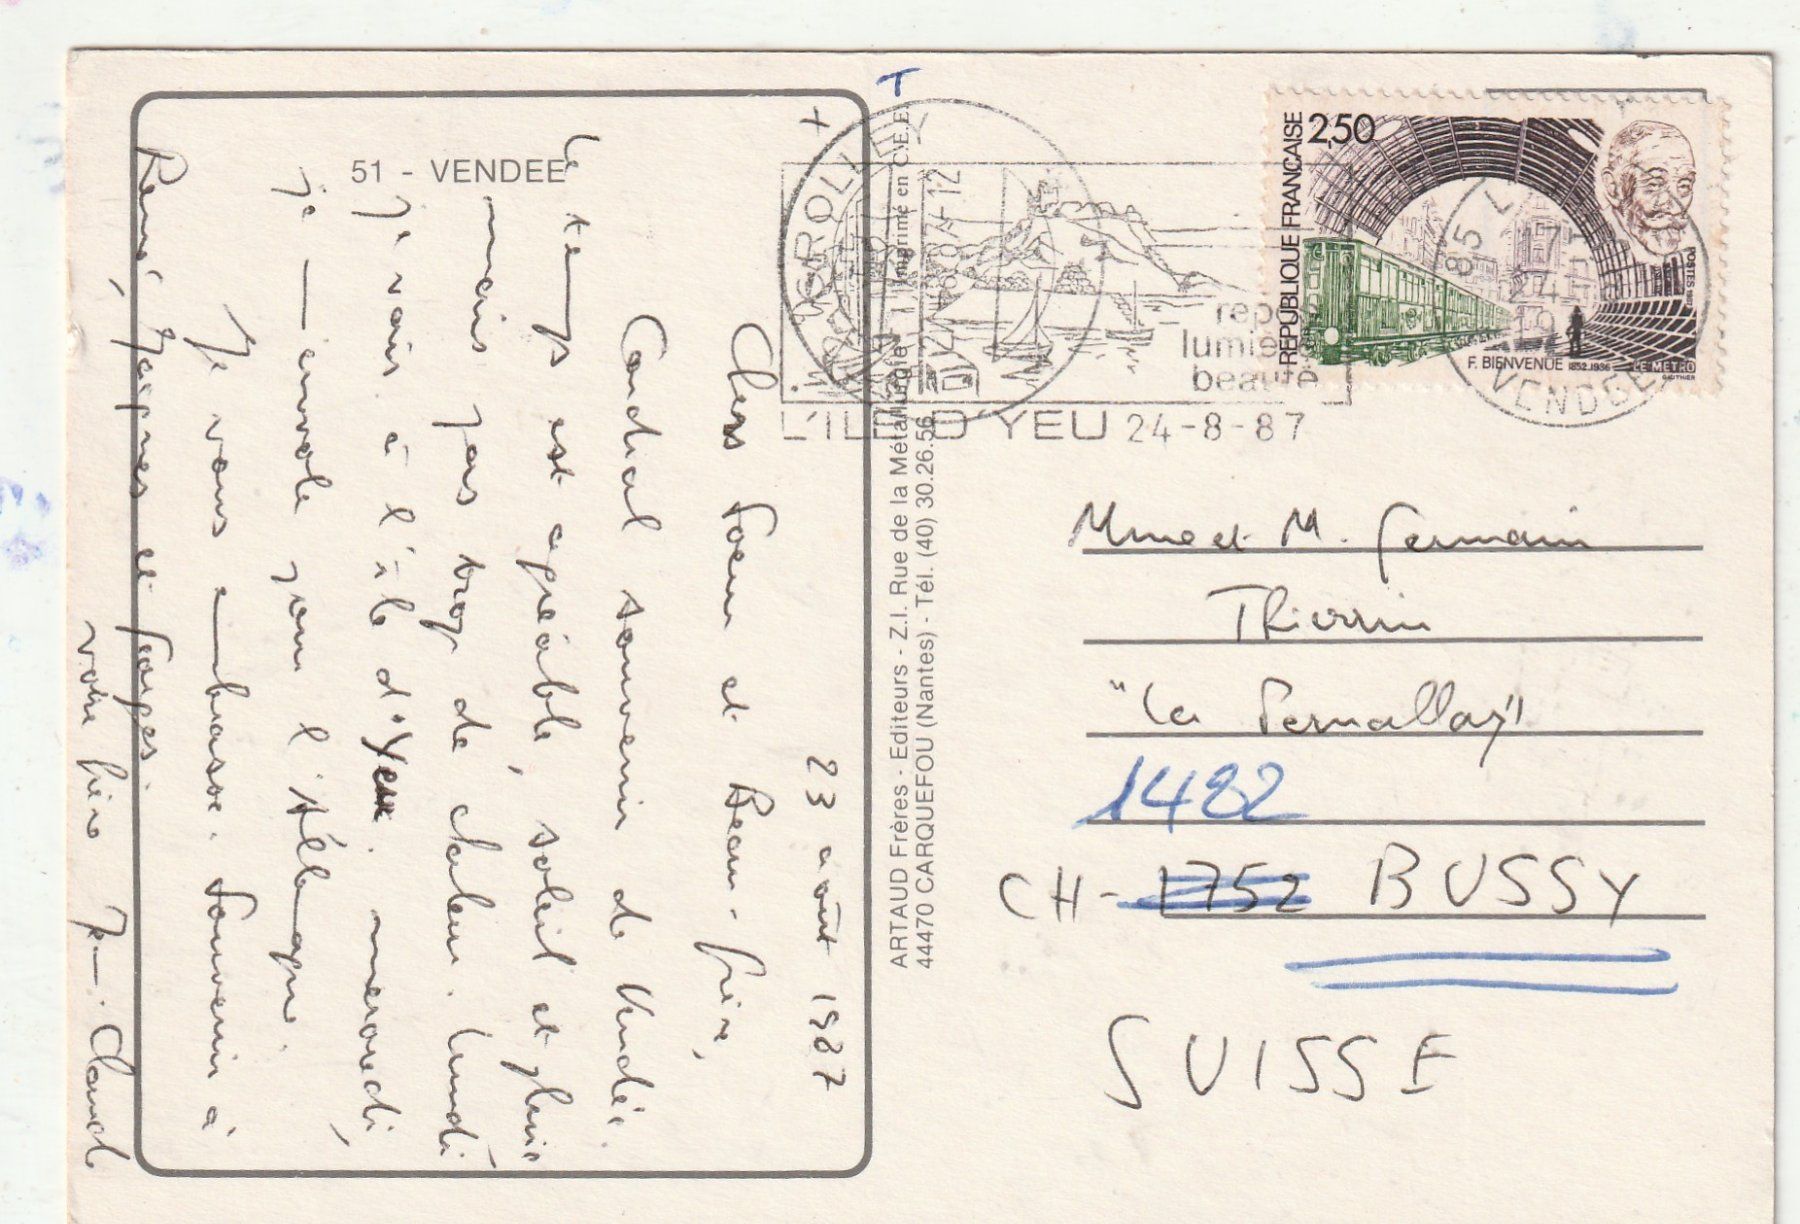 51 - VENDEE
23 août 1987
Chers Soeur et Beau-frère,
Cordial souvenir de Vendée.
Le temps est agréable, soleil et pluie
mais pas trop de chaleur. Lundi
je vais à l'île d'Yeu. mercredi,
je m'envole pour l'Allemagne.
Je vous embrasse. Souvenir à
René, Jacques et Georges.
votre frère J.-Claude
ARTAUD Frères - Editeurs - Z.I. Rue de la Métallurgie
Imprimé en C.E.E.
44470 CARQUEFOU (Nantes) - Tél. (40) 30.26.56
T
+
CROLLEY
24.-8.87-12
repos
lumière
beauté
L'ILE D'YEU 24-8-87
85
VENDEE
REPUBLIQUE FRANÇAISE
2,50
POSTES 1987
F. BIENVENUE 1852.1936
LE METRO
GAUTHIER
Mme et M. Germain
Thierrin
"La Pernallaz"
1482
CH - 1752 BUSSY
SUISSE